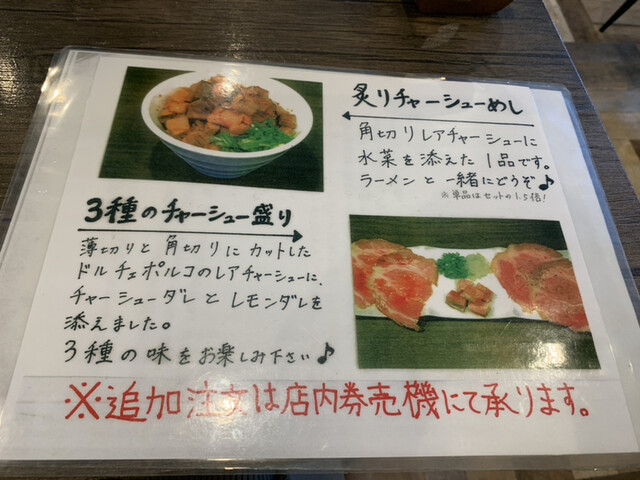 炙りチャーシューめし
角切りレアチャーシューに
水菜を添えた1品です。
ラーメンと一緒にどうぞ♪
※単品はセットの1.5倍!
3種のチャーシュー盛り
薄切りと角切りにカットした
ドルチェポルコのレアチャーシューに、
チャーシューダレとレモンダレを
添えました。
3種の味をお楽しみ下さい♪
※追加注文は店内券売機にて承ります。